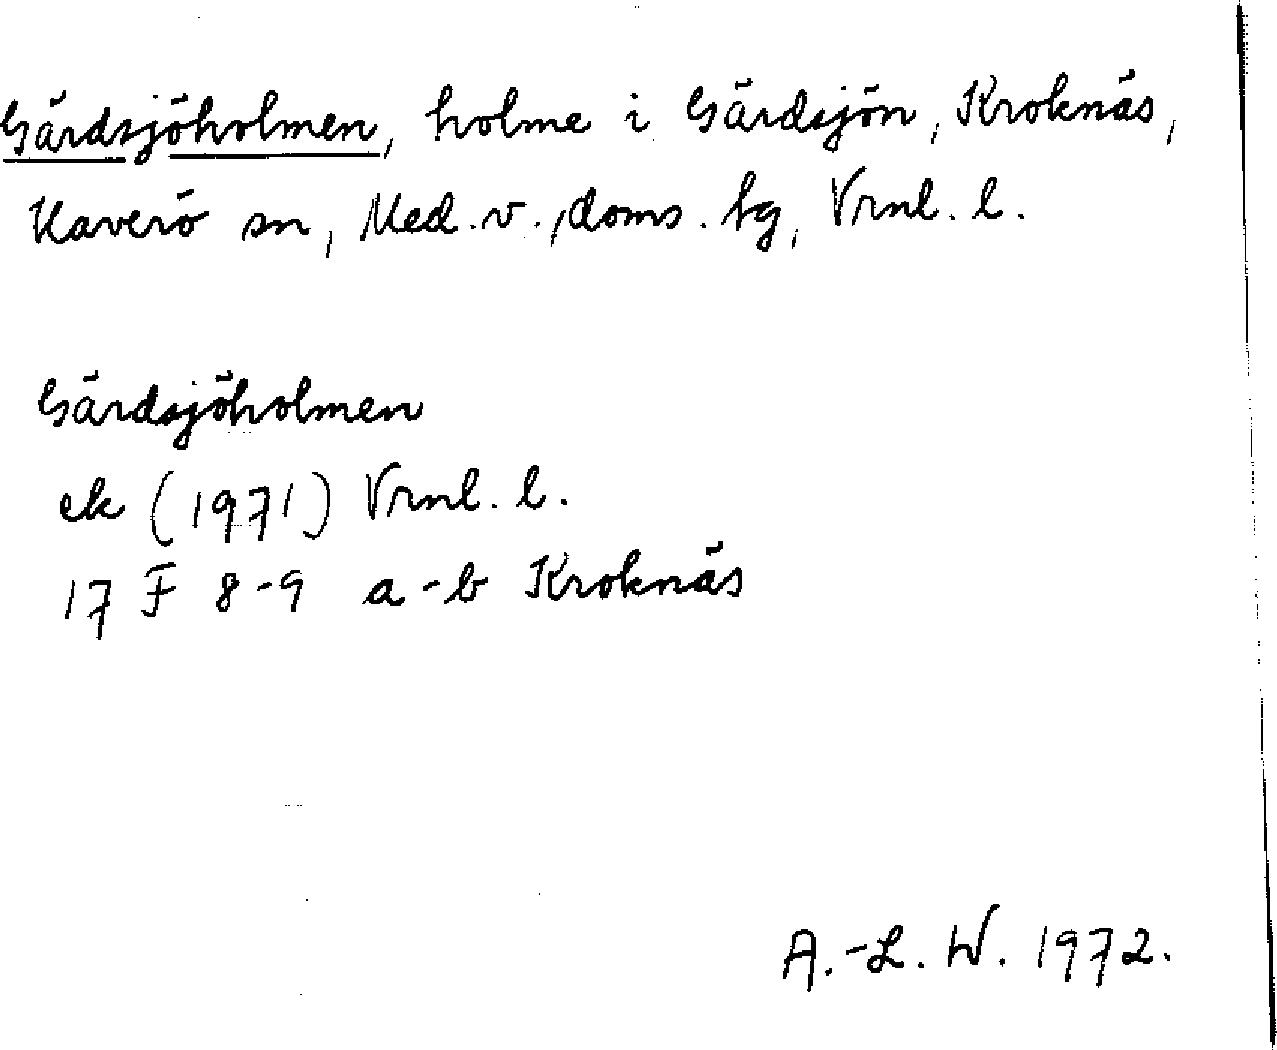 Gärdsjöholmen, holme i Gärdsjön, Kroknäs,
Haverö sn, Med. v., doms. tg, Vrnl. l.
Gärdsjöholmen
ek (1971) Vrnl. l.
17 F 8-9 a-b Kroknäs
A.-L. W. 1972.